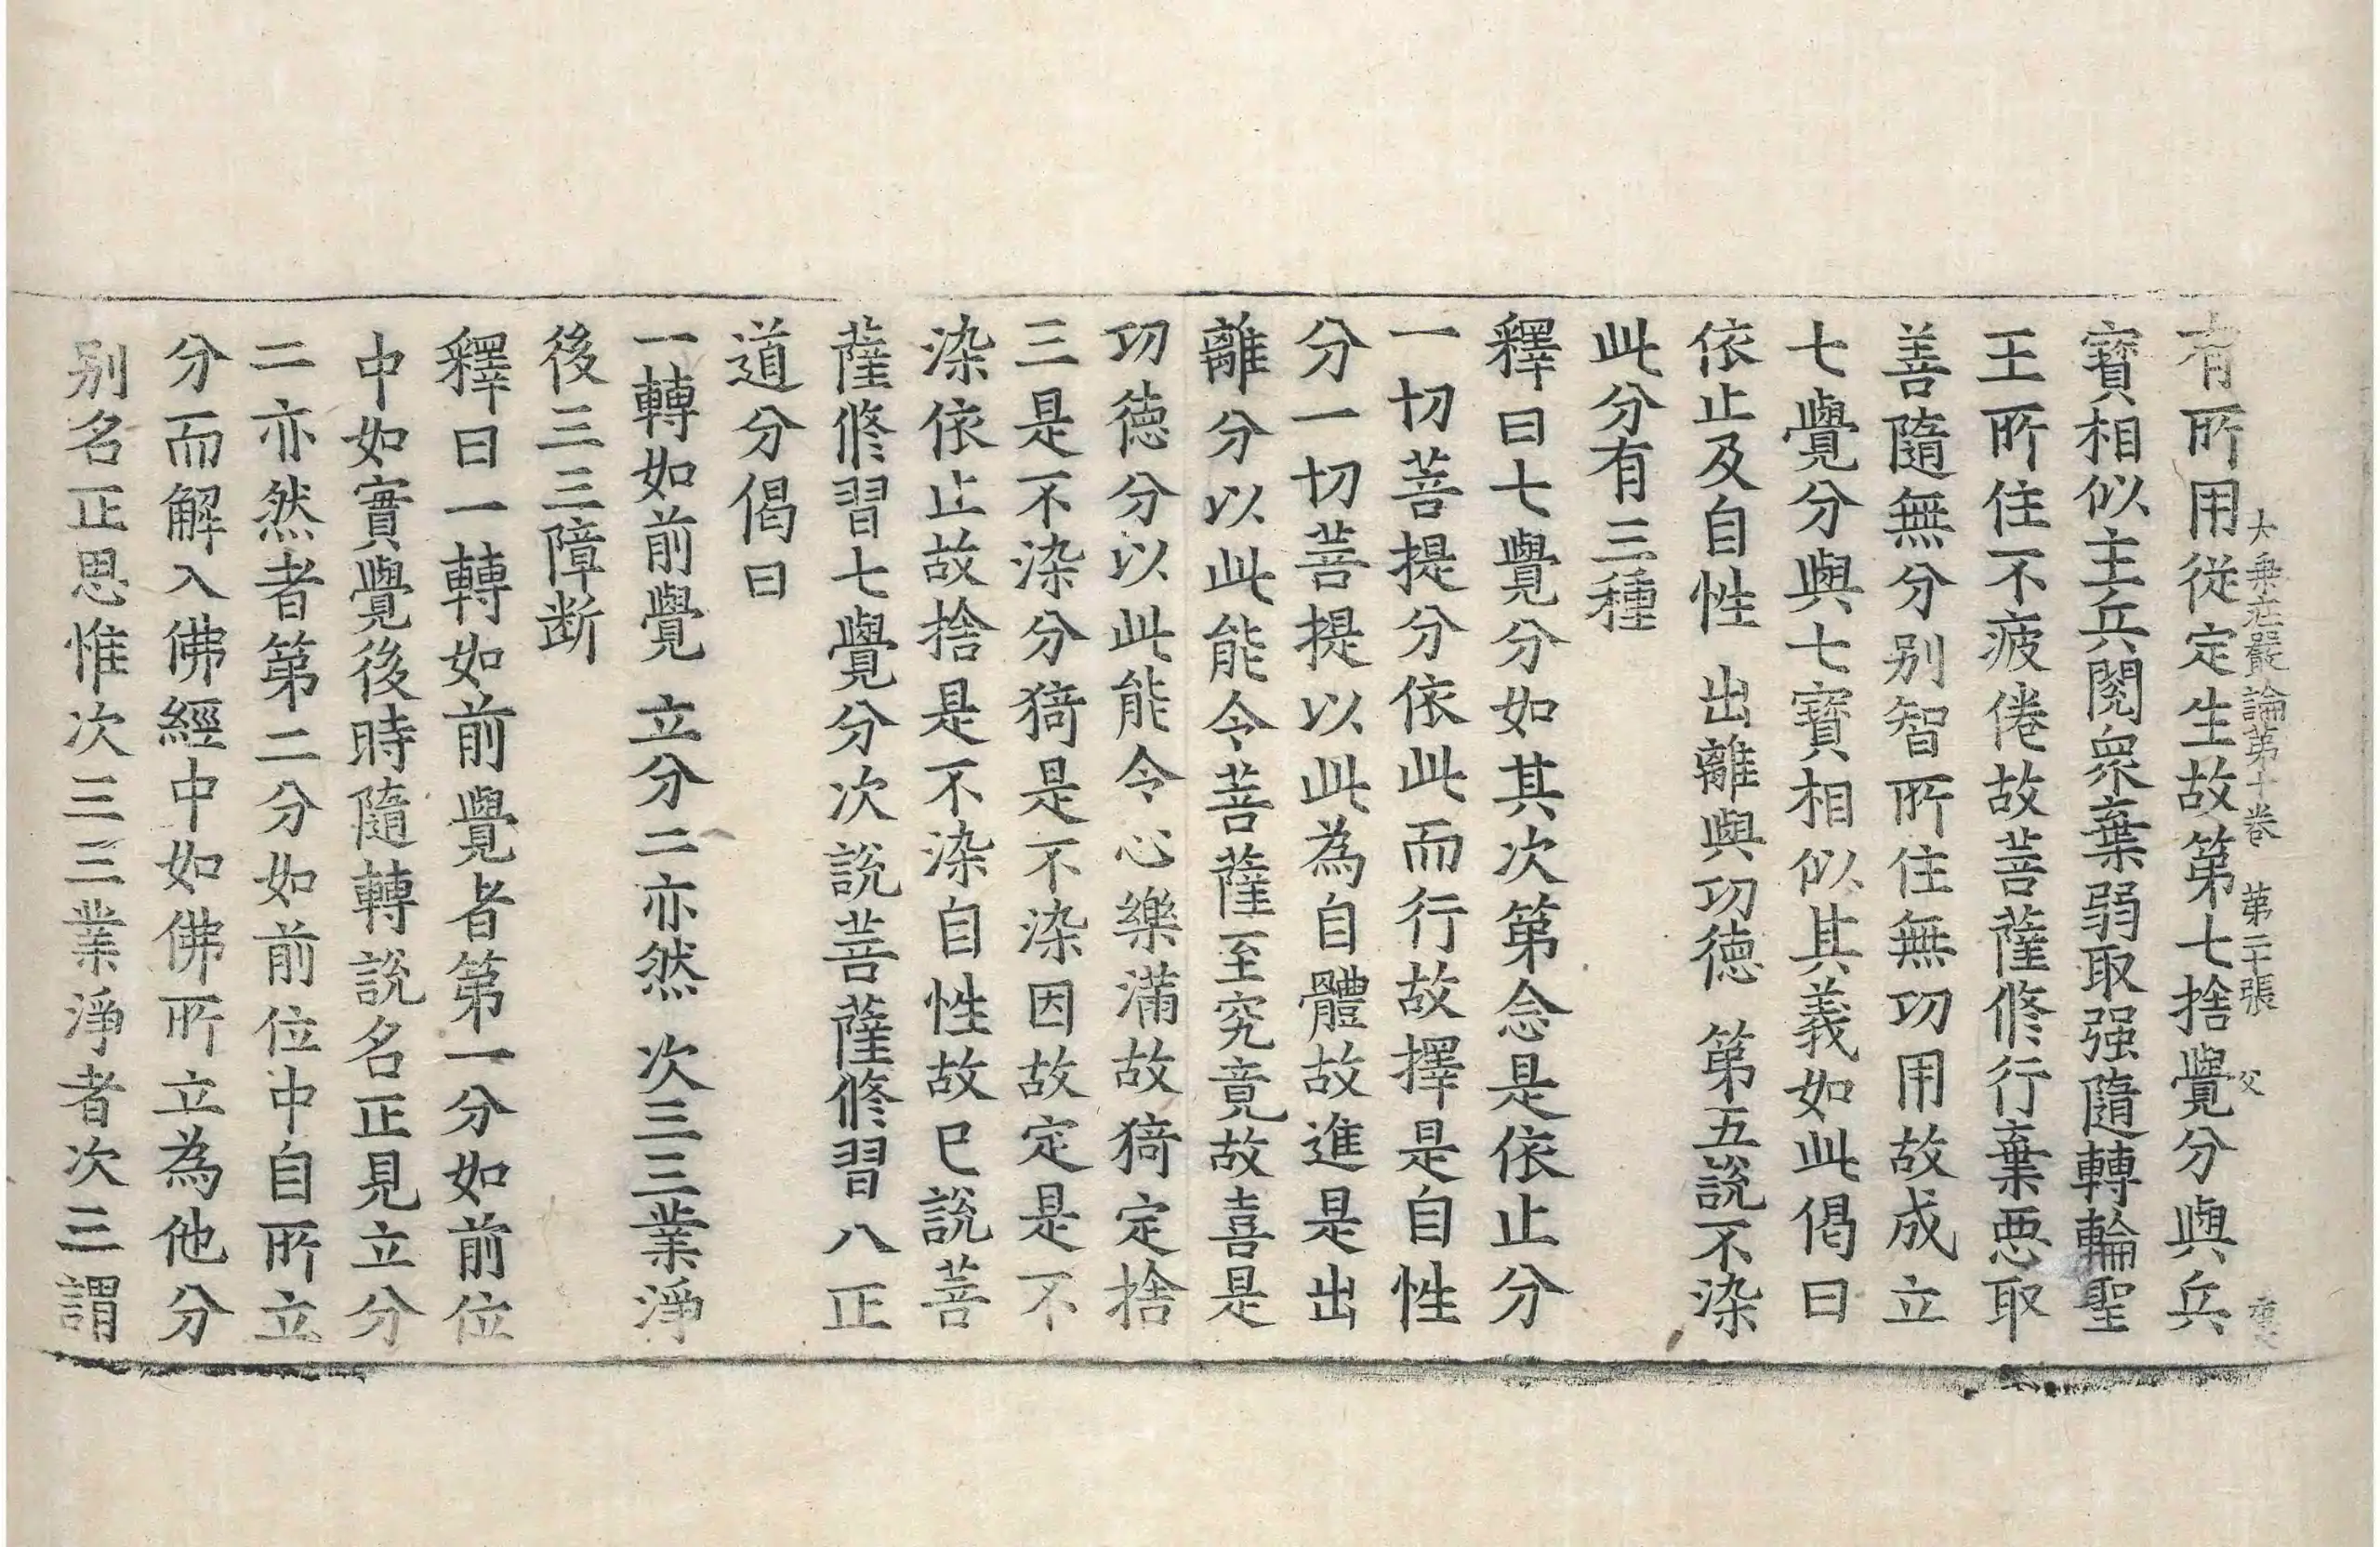 大乗荘嚴論第十卷 第二十張 父
有所用從定生故第七捨覺分與兵
寳相似主兵閱衆棄弱取强隨轉輪聖
王所住不疲倦故菩薩修行棄惡取
善隨無分别智所住無功用故成立
七覺分與七寳相似其義如此偈曰
依止及自性 出離與功德 第五說不染
此分有三種
釋曰七覺分如其次第念是依止分
一切菩提分依此而行故擇是自性
分一切菩提以此為自體故進是出
離分以此能令菩薩至究竟故喜是
功德分以此能令心樂滿故猗定捨
三是不染分猗是不染因故定是不
染依止故捨是不染自性故已說菩
薩修習七覺分次說菩薩修習八正
道分偈曰
一轉如前覺 立分二亦然 次三三業淨
後三三障断
釋曰一轉如前覺者第一分如前位
中如實覺後時隨轉說名正見立分
二亦然者第二分如前位中自所立
分而解入佛經中如佛所立為他分
别名正思惟次三三業淨者次三謂